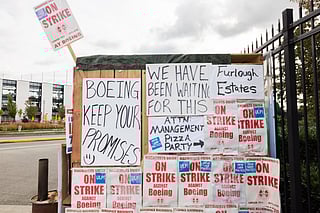 ON
STRIKE
AT BOEING
BOEING
KEEP YOUR
PROMISES
WE HAVE
BEEN WAITING
FOR THIS
Furlough
Estates
ATTN
MANAGEMENT
PIZZA
PARTY
ON
STRIKE
AGAINST
Boeing
ON
STRIKE
AGAINST
Boeing
ON
STRIKE
AGAINST
Boeing
ON
STRIKE
AGAINST
Boeing
ON
STRIKE
AGAINST
Boeing
ON
STRIKE
AGAINST
Boeing
ON
STRIKE
AGAINST
Boeing